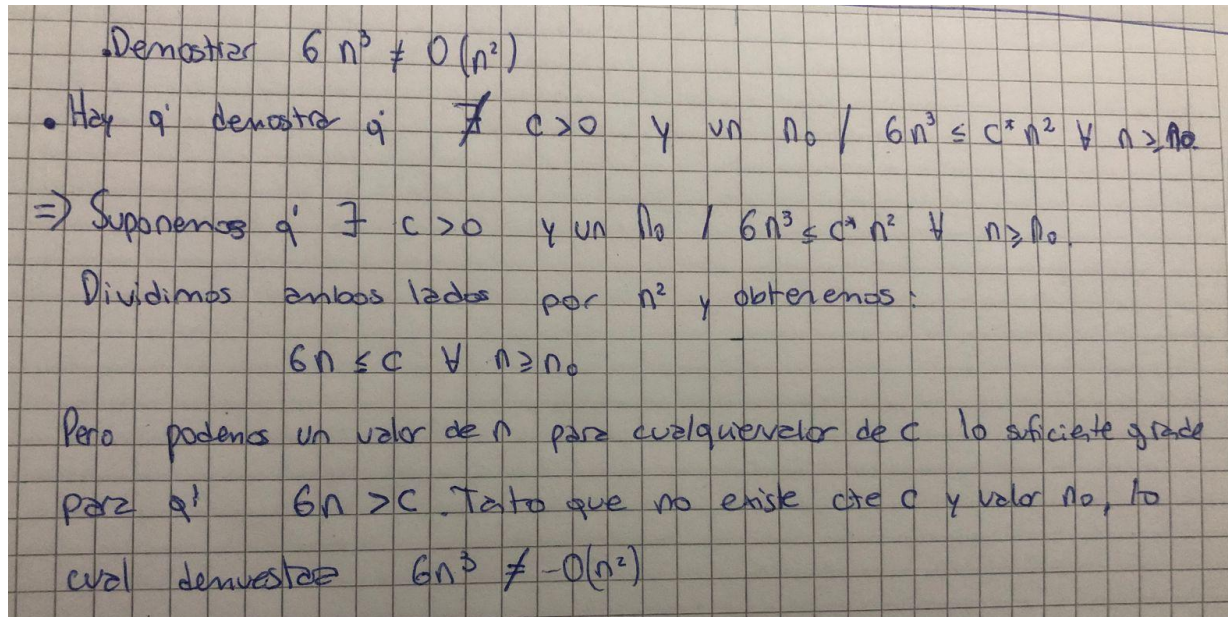 .Demostrar 6 n³ ≠ O(n²)
• Hay q' demostra q' ∄ c>0 y un n₀ / 6n³ ≤ c* n² ∀ n ≥ n₀
=> Suponemos q' ∃ c>0 y un n₀ / 6n³ ≤ c* n² ∀ n ≥ n₀.
Dividimos ambos lados por n² y obtenemos:
6n ≤ c ∀ n ≥ n₀
Pero podemos un valor de n para cualquier valor de c lo suficiente grade
para q' 6n > c. Tato que no existe cte c y valor n₀, lo
cual demuestra 6n³ ≠ O(n²)